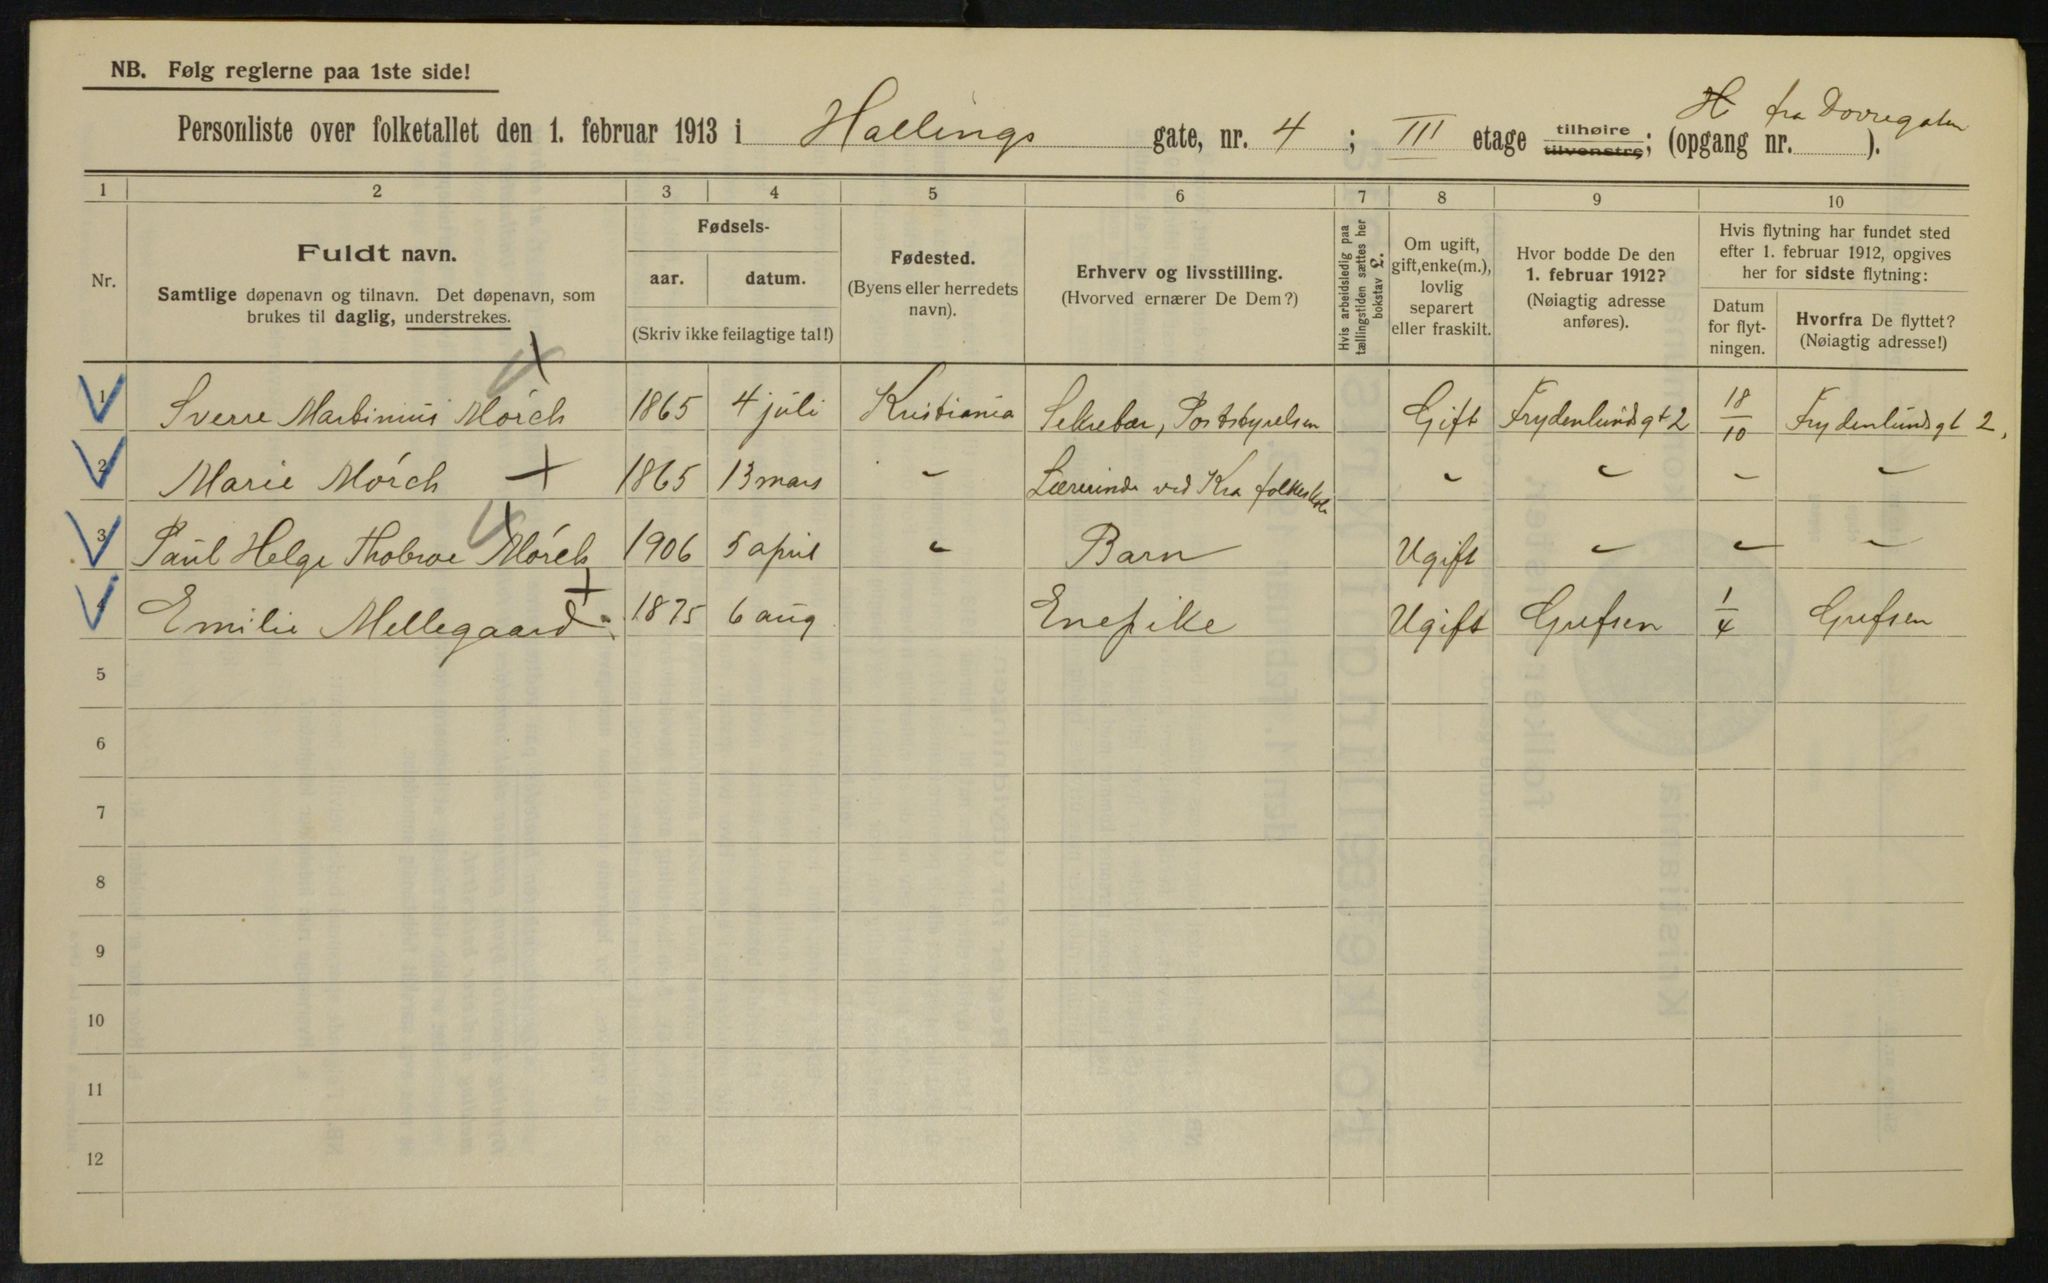 NB. Følg reglerne paa 1ste side!
H fra Dovregaten
Personliste over folketallet den 1. februar 1913 i Hallings gate, nr. 4 ; III etage tilhøire tilvenstre; (opgang nr. ).
1 2 3 4 5 6 7 8 9 10
Nr.
Fuldt navn.
Samtlige døpenavn og tilnavn. Det døpenavn, som
brukes til daglig, understrekes.
Fødsels-
aar. datum.
(Skriv ikke feilagtige tal!)
Fødested.
(Byens eller herredets
navn).
Erhverv og livsstilling.
(Hvorved ernærer De Dem?)
Hvis arbeidsledig paa
tællingstiden sættes her
bokstav L.
Om ugift,
gift, enke(m.),
lovlig
separert
eller fraskilt.
Hvor bodde De den
1. februar 1912?
(Nøiagtig adresse
anføres).
Hvis flytning har fundet sted
efter 1. februar 1912, opgives
her for sidste flytning:
Datum
for flyt-
ningen.
Hvorfra De flyttet?
(Nøiagtig adresse!)
1 Sverre Martinius Mørch 1865 4 juli Kristiania Sekretær, Poststyrelsen Gift Frydenlundsgt 2 18/10 Frydenlundsgt 2,
2 Marie Mørch 1865 13 mars " Lærerinde ved Kra folkeskole " " " "
3 Paul Helge Mørch 1906 5 april " Barn Ugift " " "
4 Emilie Mellegaard 1875 6 aug Enepike Ugift Grefsen 1/4 Grefsen
5
6
7
8
9
10
11
12